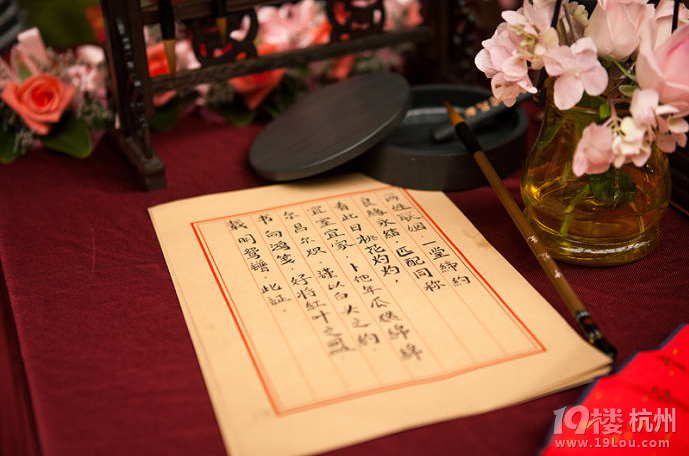 两姓联姻 一堂締约
良缘永结,匹配同称
看此日桃花灼灼,
宜室宜家,卜他年瓜瓞绵绵
尔昌尔炽.谨以白头之约.
书向鸿笺.好将紅叶之盟
载明鴛譜 此証.
19楼 杭州
www.19Lou.com